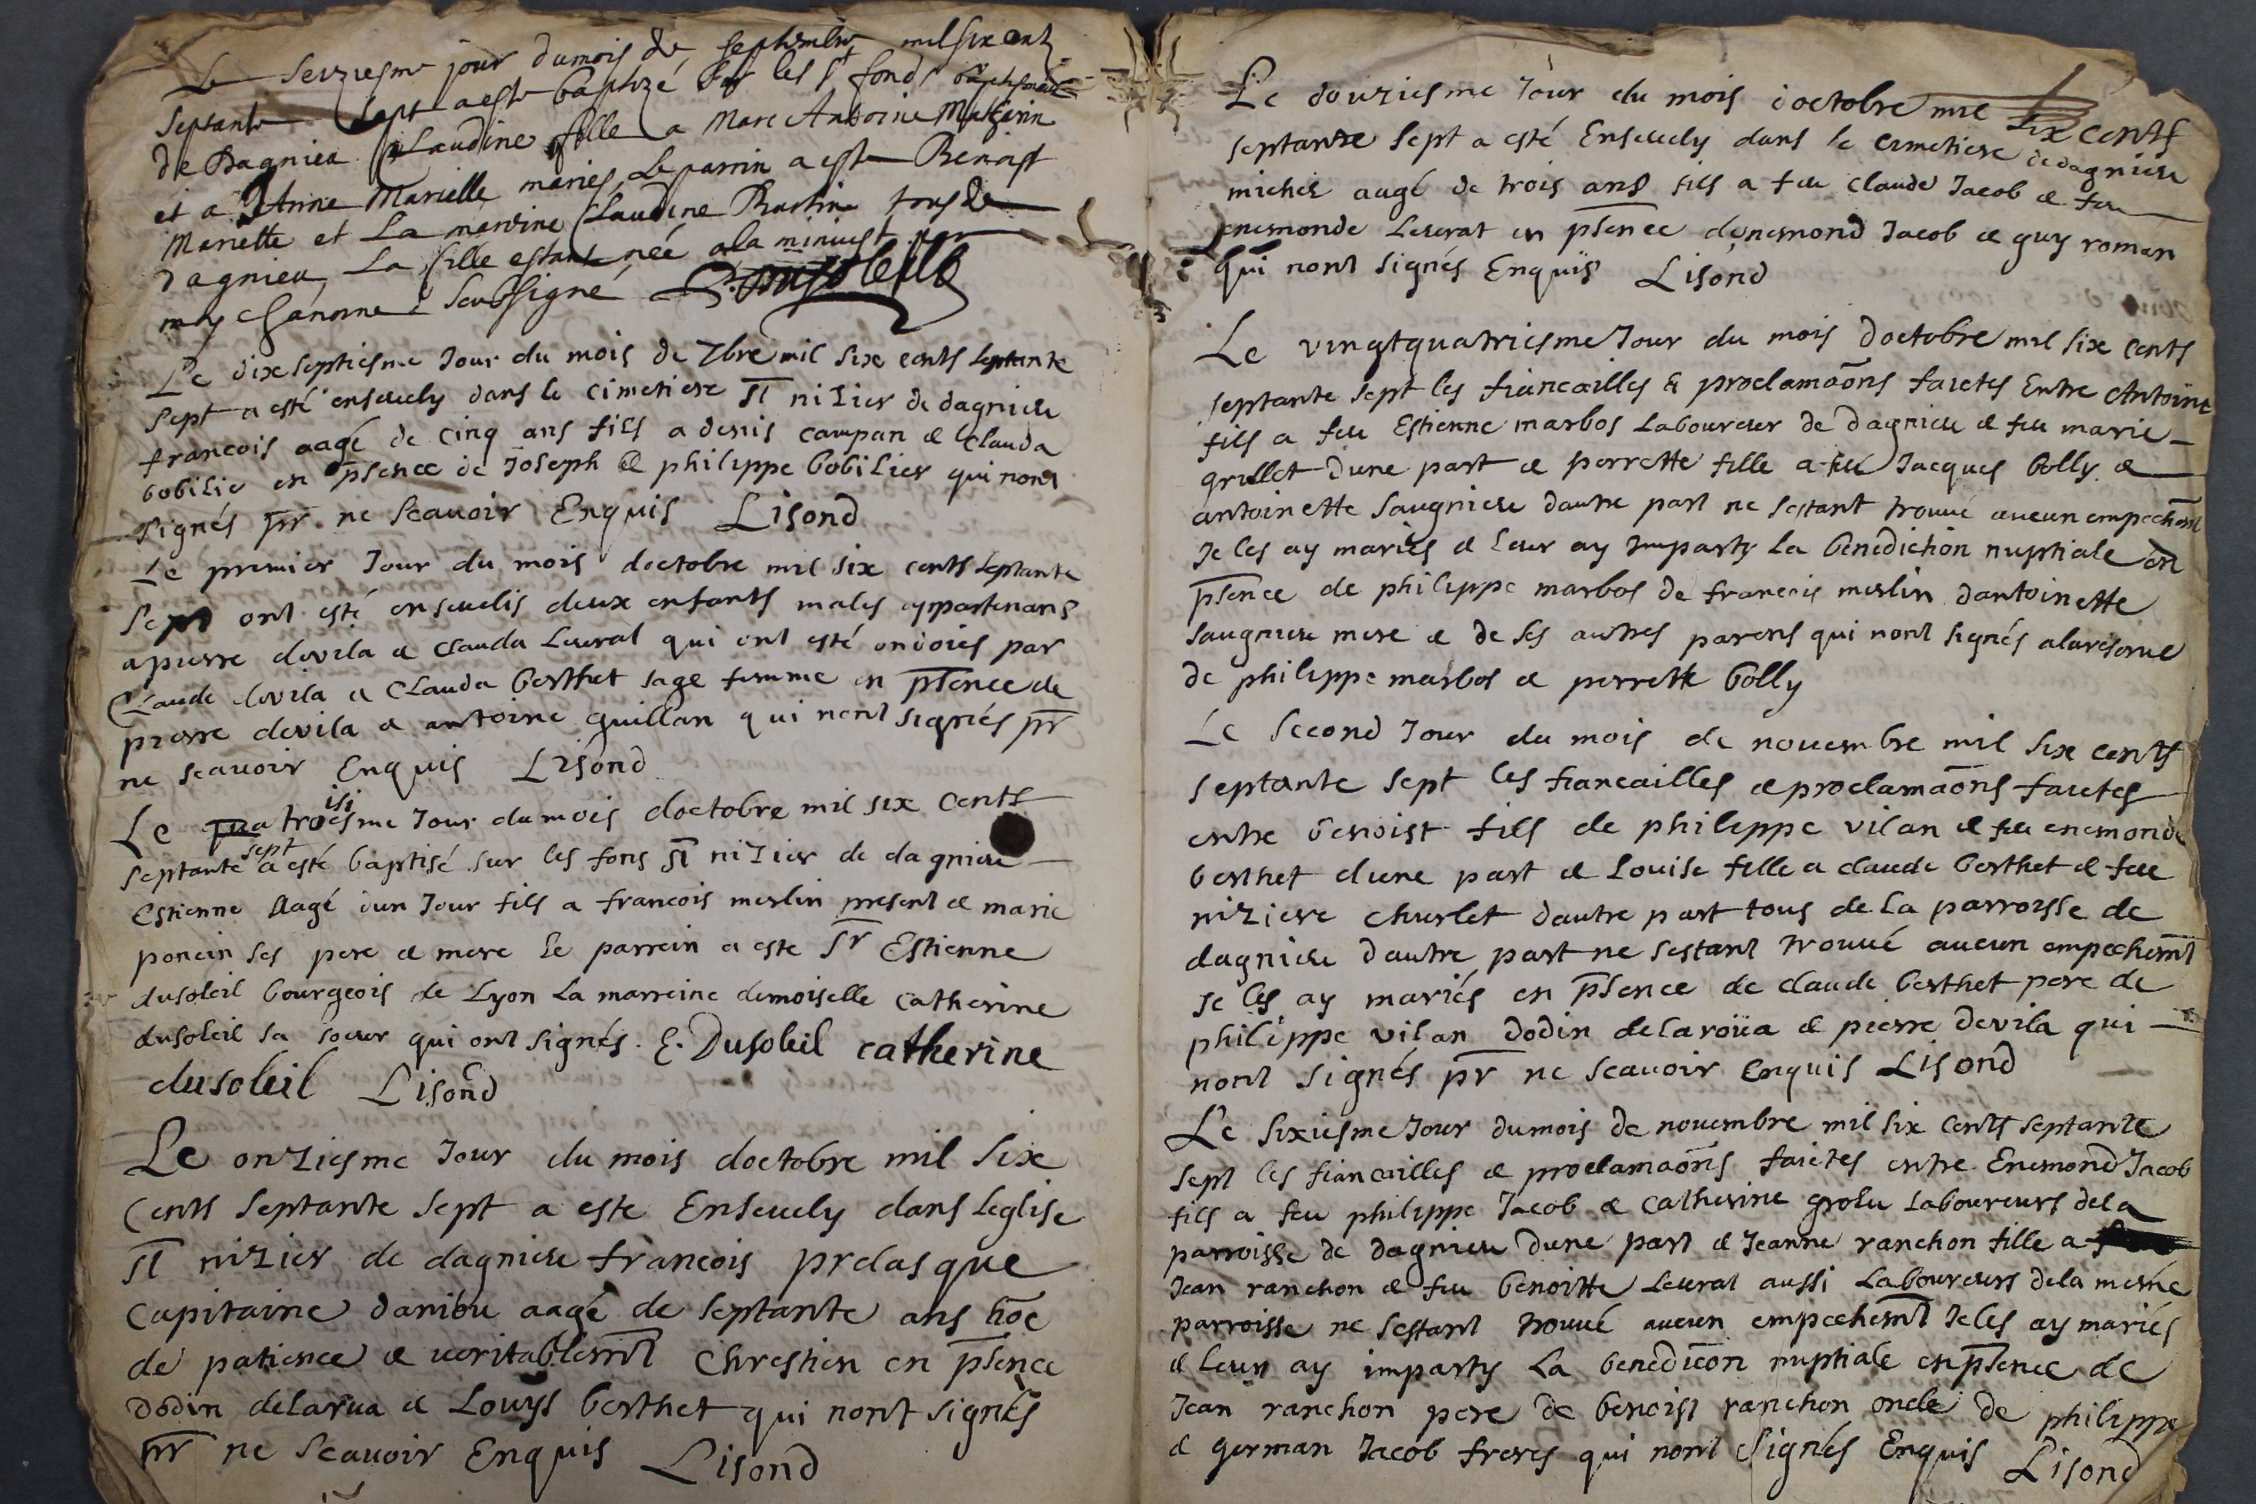 Le seiziesme jour du mois de septembre mil six cent
septante sept a este baptizé sur les st fonds baptismaux
de Dagnieu Claudine fille a Marc Antoine
et a Anne Marielle mariés Le parrin a este Benoist
Mariette et La marrine Claudine tous de
dagnieu La fille estant née a la minuest par
moy chanoine soubsigné
Le dixseptiesme Jour du mois de 7bre mil six cents septante
sept a esté enseuely dans le cimetiere st nizier de dagnieu
francois aagé de cinq ans fils a denis campan & Clauda
bobilie en psence de Joseph & philippe bobilier qui nont
signés pr ne scauoir Enquis Lisond
Le premier Jour du mois doctobre mil six cents septante
sept ont esté enseuelis deux enfants males appartenans
a pierre devila & Clauda Leurat qui ont esté ondoiés par
Claude devila & Clauda berthet sage femme en psence de
pierre devila & antoine guillan qui nont signés pr
ne scauoir Enquis Lisond
isi
Le quatroiesme Jour du mois doctobre mil six cents
sept
septante a esté baptisé sur les fons st nizier de dagnieu
Estienne Aagé dun Jour fils a francois merlin present & marie
poncin ses pere & mere Le parrein a este Sr Estienne
dusoleil bourgeois de Lyon La marreine demoiselle catherine
dusoleil sa soeur qui ont signés. E. Dusoleil catherine
dusoleil Lisond
Le onziesme Jour du mois doctobre mil six
Cents septante sept a este Enseuely dans Leglise
st nizier de dagnieu francois prelasque
Capitaine danibu aagé de septante ans hōe
de patience & ueritablemt Chrestien en psence
dodin delarua & Louys berthet qui nont signés
pr ne scauoir Enquis Lisond
Le douziesme Jour du mois doctobre mil six cents
septante sept a esté Enseuely dans le cimetiere de dagnieu
michel aagé de trois ans fils a feu claude Jacob & feu
enemonde Leurat en psence denemond Jacob & guy roman
qui nont signés Enquis Lisond
Le vingtquatriesme Jour du mois doctobre mil six cents
septante sept les fiancailles & proclamaōns faictes Entre Antoine
fils a feu Estienne marbos Laboureur de dagnieu & feu marie
grillet dune part & perrette fille a feu Jacques bolly &
antoinette saugnieu dautre part ne sestant trouué aucun empechemt
Je les ay mariés & leur ay Imparty La benediction nuptiale en
psence de philippe marbos de francois merlin dantoinette
saugnieu mere & de ses autres parens qui nont signés alareserue
de philippe marbos & perrette bolly
Le second Jour du mois de nouembre mil six cents
septante sept les fiancailles & proclamaōns faictes
entre benoist fils de philippe vilan & feu enemonde
berthet dune part & Louise fille a claude berthet & feu
niziere churlet dautre part tous de la parroisse de
dagnieu dautre part ne sestant trouué aucun empechemt
Je les ay mariés en psence de claude berthet pere de
philippe vilan dodin delaroüa & pierre devila qui
nont signés pr ne scauoir Enquis Lisond
Le sixiesme Jour du mois de nouembre mil six cents septante
sept les fiancailles & proclamaōns faictes entre Enemond Jacob
fils a feu philippe Jacob & Catherine grolu Laboureurs dela
parroisse de dagnieu dune part & Jeanne ranchon fille a
Jean ranchon & feu benoitte Leurat aussi Laboureurs dela mesme
parroisse ne sestant trouué aucun empechemt Je les ay mariés
& leur ay imparty La benedicōn nuptiale en psence de
Jean ranchon pere de benoist ranchon oncle de philippe
& german Jacob freres qui nont signés Enquis Lisond